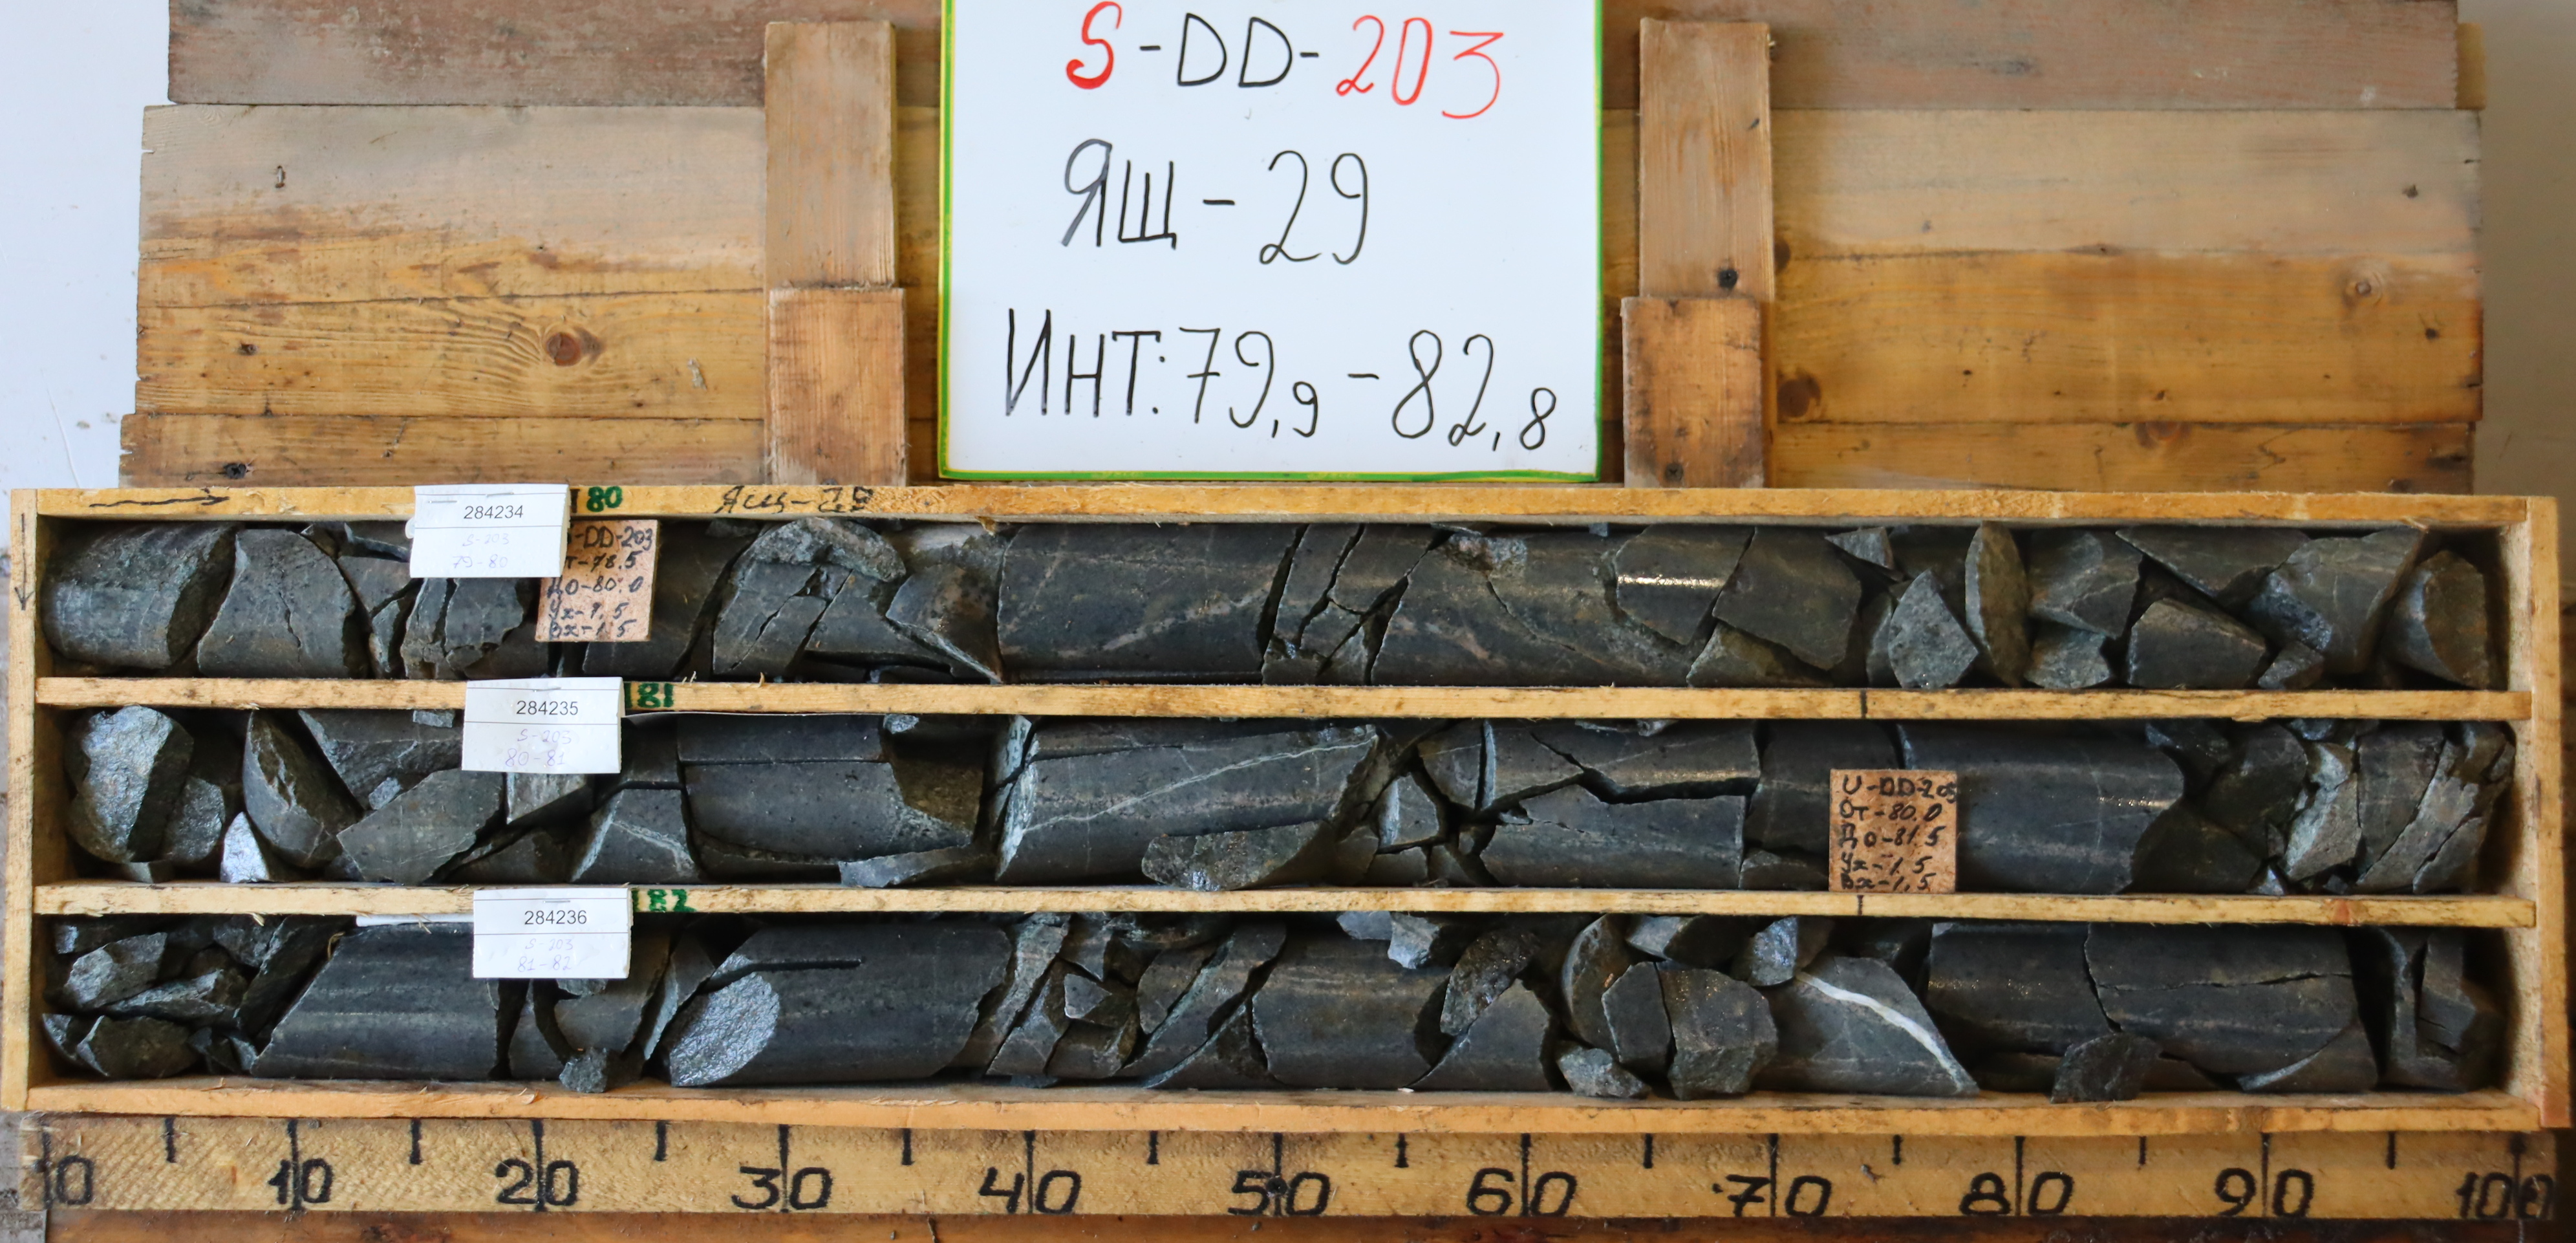 S-DD-203
ЯЩ-29
ИНТ: 79,9-82,8
80
Ящ-29
284234
S-203
79-80
-DD-203
От-78.5
До-80.0
Ух-1.5
Вх-1.5
81
284235
S-203
80-81
U-DD-203
От-80.0
До-81.5
Ух-1.5
Вх-1.5
82
284236
S-203
81-82
0 10 20 30 40 50 60 70 80 90 100